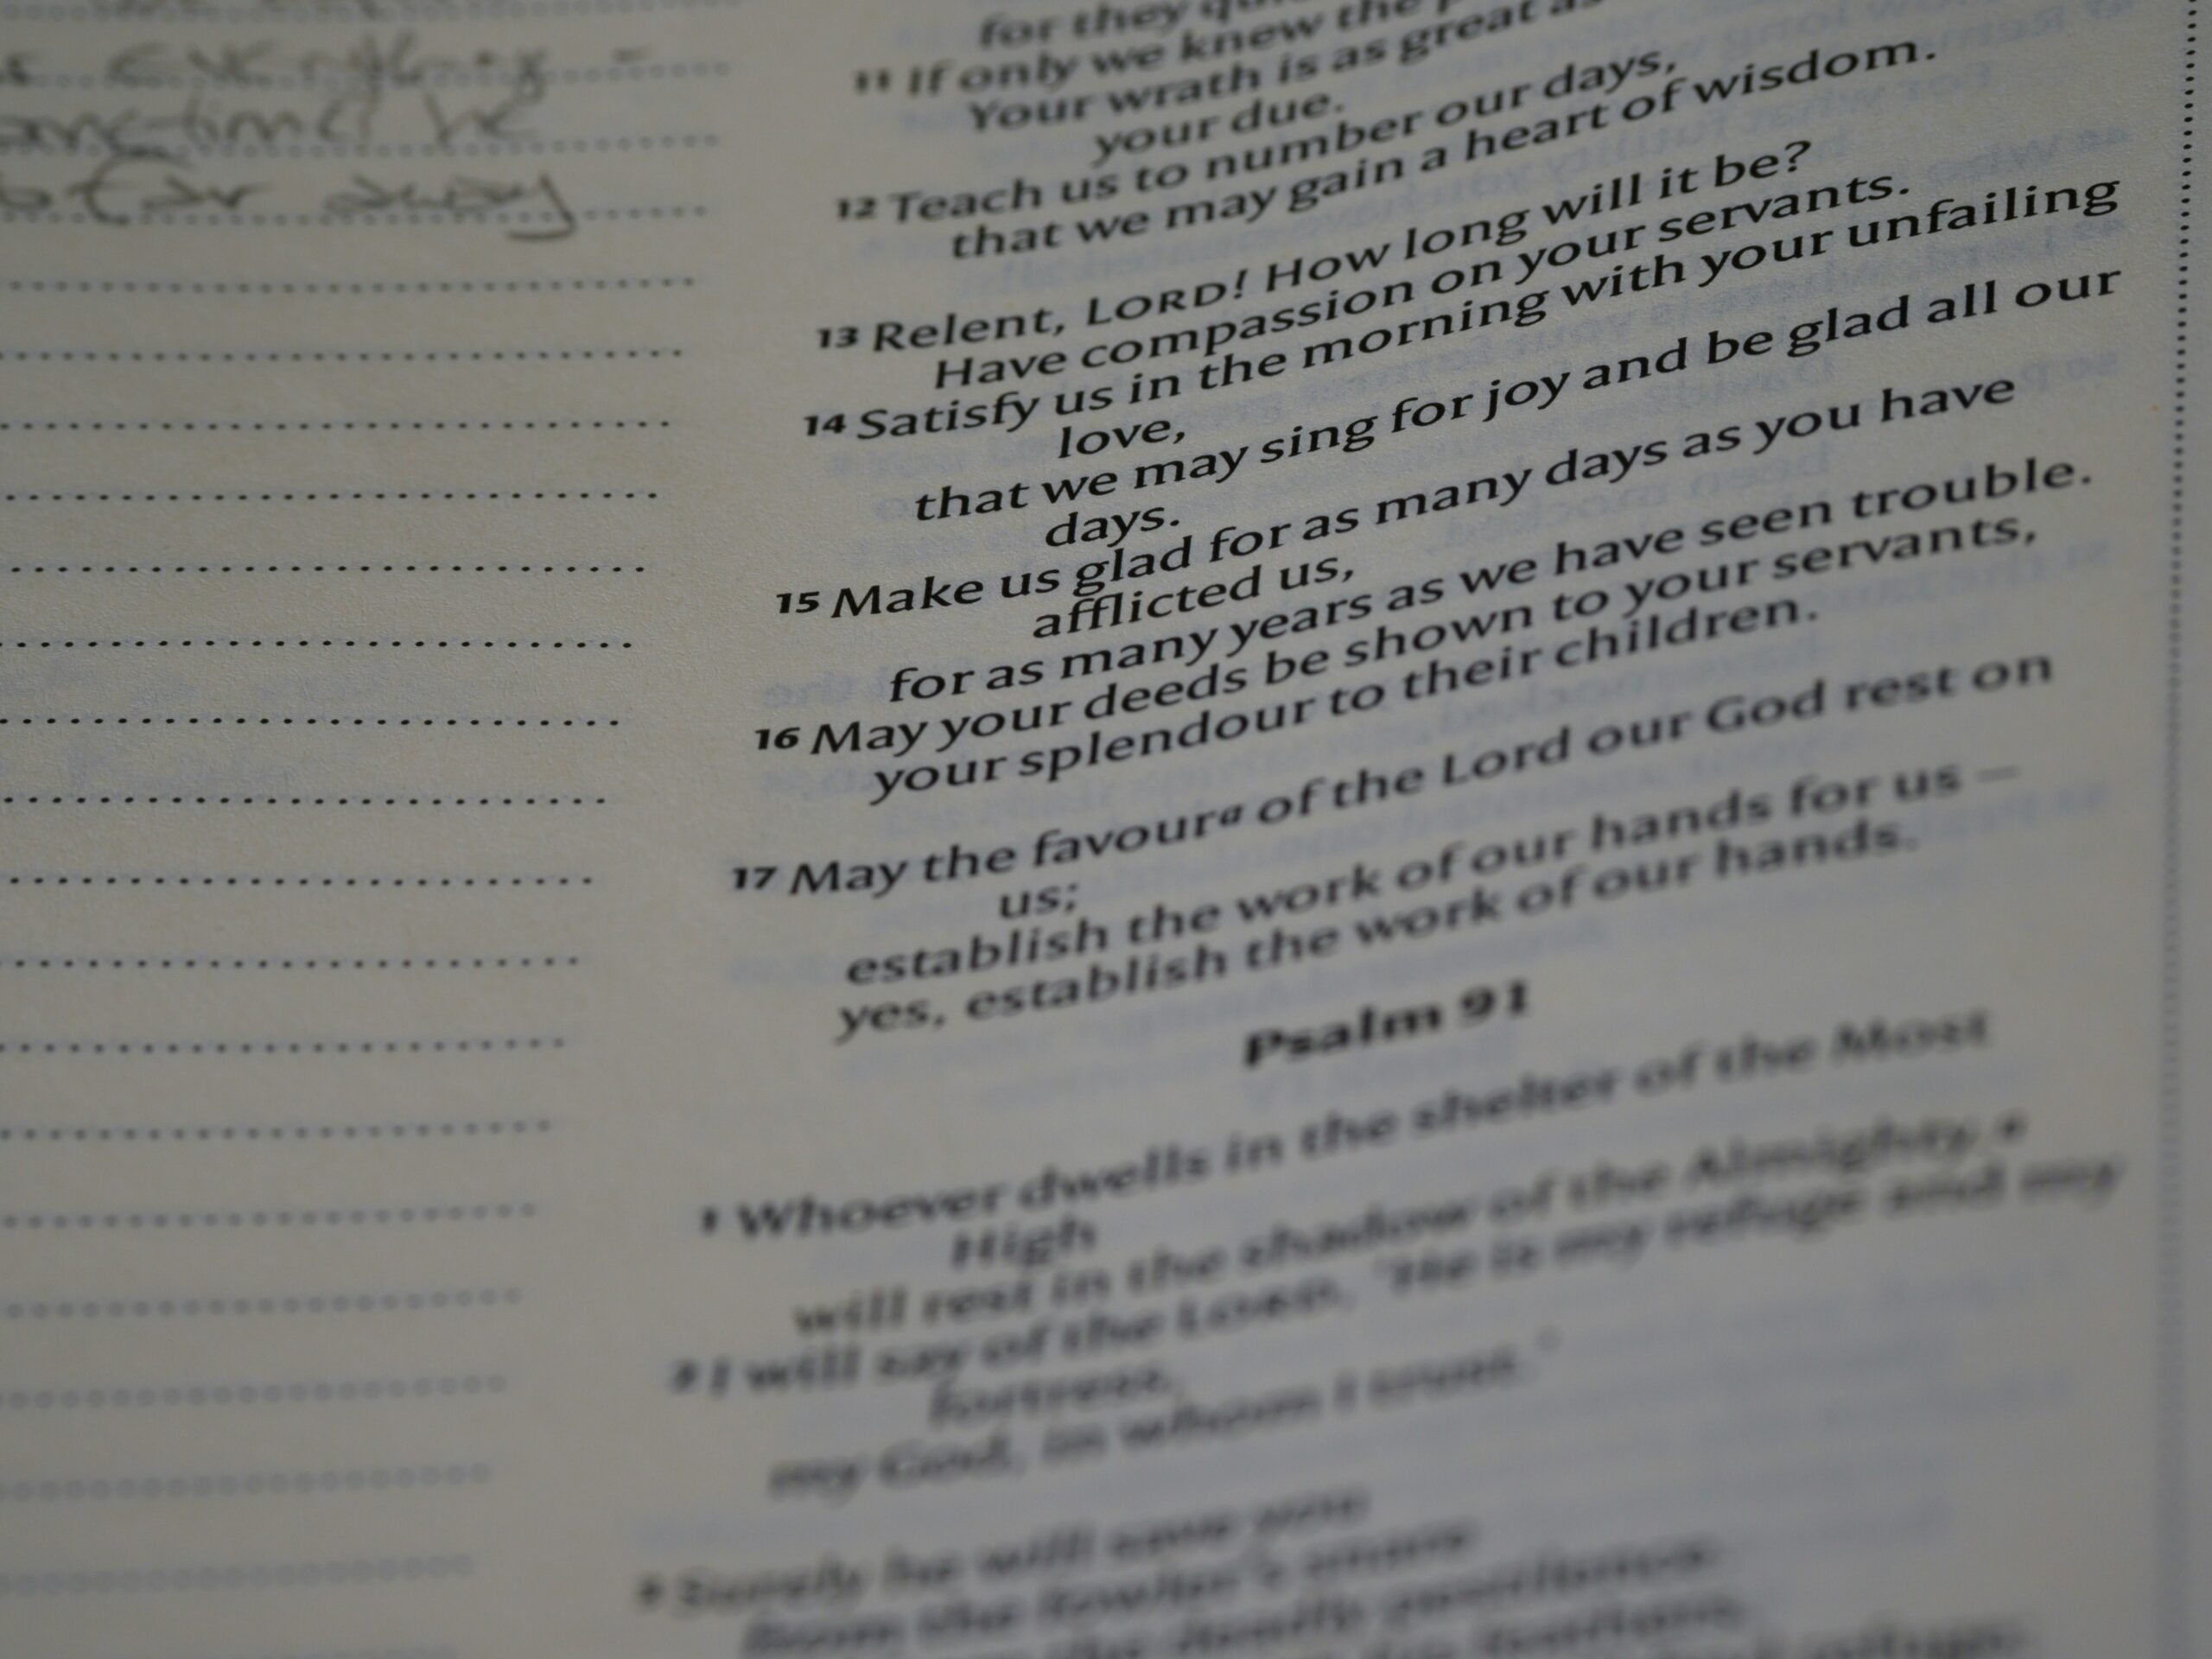 everything -
he
far away
for they
11 If only we knew the
Your wrath is as great as
your due.
12 Teach us to number our days,
that we may gain a heart of wisdom.
13 Relent, LORD! How long will it be?
Have compassion on your servants.
14 Satisfy us in the morning with your unfailing
love,
that we may sing for joy and be glad all our
days.
15 Make us glad for as many days as you have
afflicted us,
for as many years as we have seen trouble.
16 May your deeds be shown to your servants,
your splendour to their children.
17 May the favour a of the Lord our God rest on
us;
establish the work of our hands for us –
yes, establish the work of our hands.
Psalm 91
1 Whoever dwells in the shelter of the Most
High
will rest in the shadow of the Almighty.
2 I will say of the LORD, 'He is my refuge and my
fortress,
my God, in whom I trust.'
3 Surely he will save you
from the fowler's snare
deadly pestilence